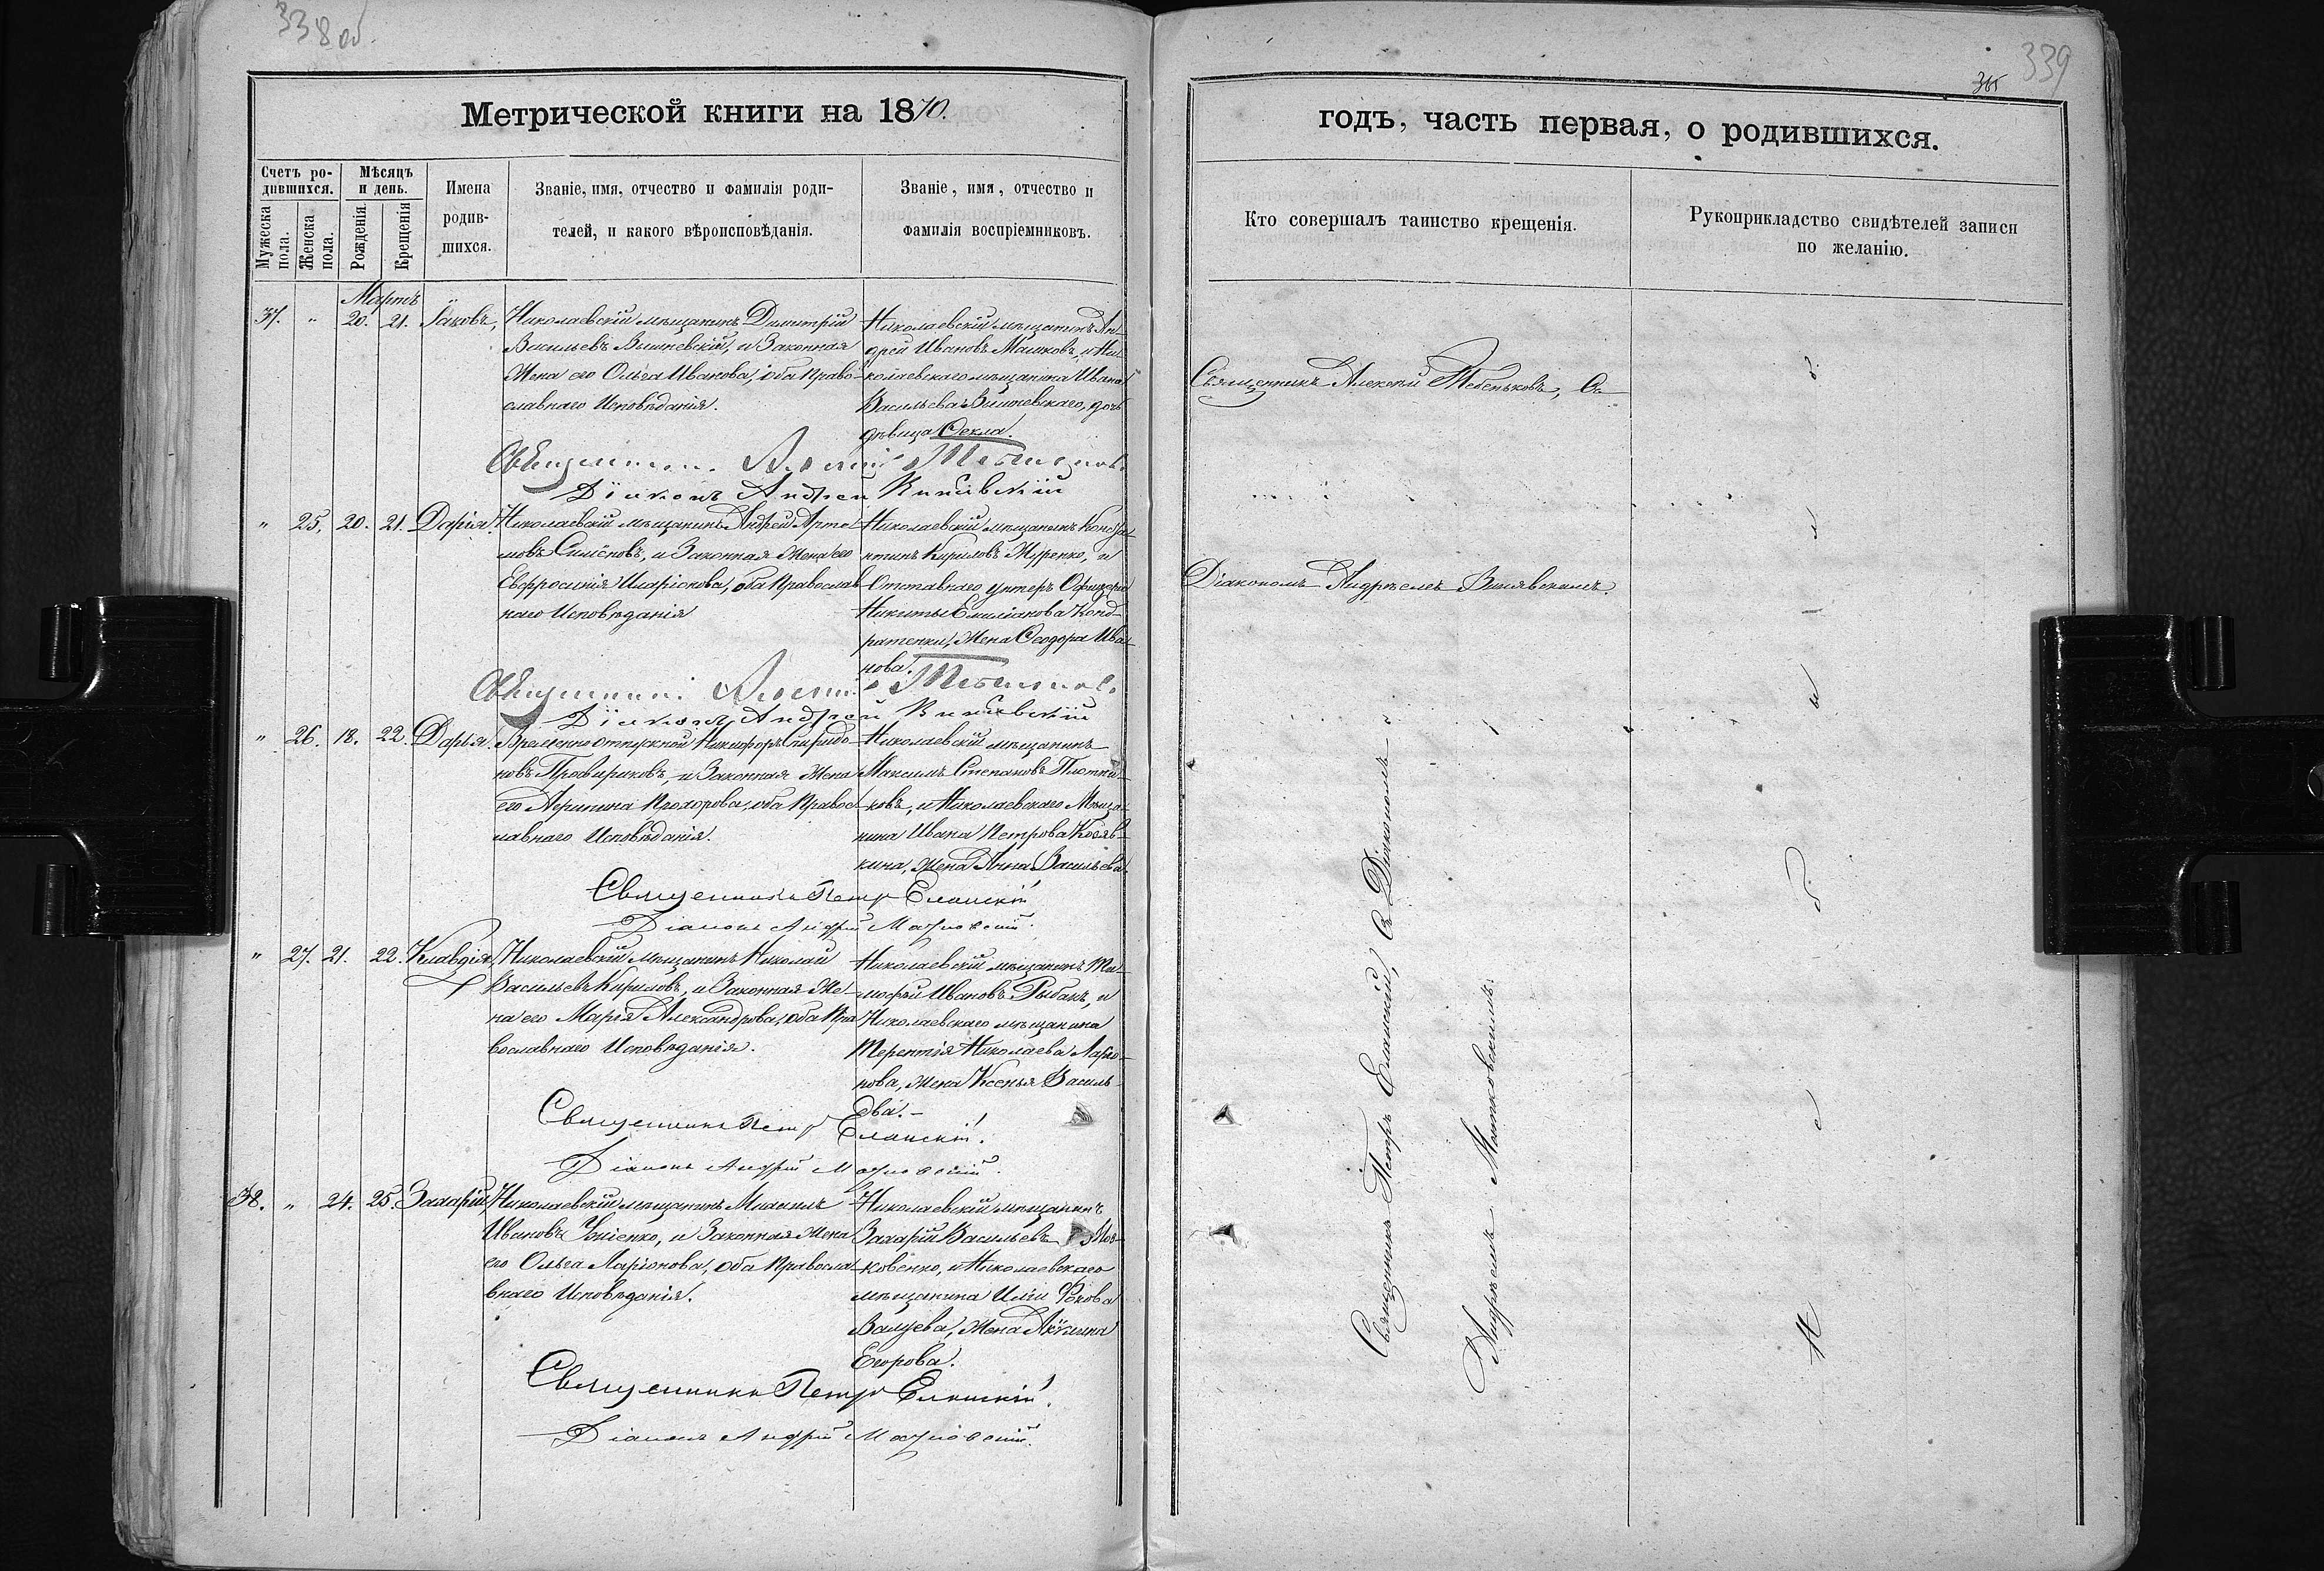 338 об.
Метрической книги на 1870.
Счетъ ро-
дившихся.
Мѣсяцъ
и день.
Мужеска
пола.
Женска
пола.
Рожденія.
Крещенія
Имена
родив-
шихся.
Званіе, имя, отчество и фамилія роди-
телей, и какого вѣроисповѣданія.
Званіе, имя, отчество и
фамилія воспріемниковъ.
Мартъ
37. " 20. 21. Іаковъ,
Николаевскій мѣщанинъ Димитрій
Васильевъ Вишневскій, и Законная
Жена его Ольга Иванова, оба Право-
славнаго Исповѣданія.
Николаевскій мѣщанинъ Ан-
дрей Ивановъ Машковъ, и Ни-
колаевскаго мѣщанина Ивана
Васильева Вишневскаго, дочь
дѣвица Ѳекла.
Священникъ Алексѣй
Діаконъ Андрей
" 25. 20. 21. Дарія.
Николаевскій мѣщанинъ Андрей Арте-
мовъ Симоновъ, и Законная Жена его
Евфросинія Иларіонова, оба Православ-
наго Исповѣданія
Николаевскій мѣщанинъ Конста-
нтинъ Кириловъ Журенко, и
Отставнаго унтеръ Офицера
Никиты Емиліанова Конд-
ратенки, Жена Ѳеодора Ива-
нова.
Священникъ Алексѣй
Діаконъ Андрей
" 26. 18. 22. Дарья.
Временно отпускной Никифоръ Спиридо-
новъ Просвириковъ, и Законная Жена
его Агрипина Прохорова, оба Правос-
лавнаго Исповѣданія.
Николаевскій мѣщанинъ
Максимъ Степановъ Плотни-
ковъ, и Николаевскаго Мѣща-
нина Ивана Петрова Козяв-
кина, Жена Анна Васильева.
Священникъ Петръ Еланскій
Діаконъ Андрей Матковскій.
" 27. 21. 22. Клавдія,
Николаевскій мѣщанинъ Николай
Васильевъ Кириловъ, и Законная Же-
на его Марія Александрова, оба Пра-
вославнаго Исповѣданія.
Николаевскій мѣщанинъ Ти-
мофѣй Ивановъ Рыбакъ, и
Николаевскаго мѣщанина
Терентія Николаева Ларіо-
нова, Жена Ксенья Василь-
ева.—
Священникъ Петръ Еланскій.
Діаконъ Андрей Матковскій.
38. " 24. 25. Захарій,
Николаевскій мѣщанинъ Михаилъ
Ивановъ и Законная Жена
его Ольга Ларіонова, оба Правосла-
внаго Исповѣданія.
Николаевскій мѣщанинъ
Захарій Васильевъ
ковенко, и Николаевскаго
мѣщанина Иліи Фокова
Валуева, Жена Акулина
Егорова.
Священникъ Петръ Еланскій.
Діаконъ Андрей Матковскій.
339
годъ, часть первая, о родившихся.
Кто совершалъ таинство крещенія.
Рукоприкладство свидѣтелей записи
по желанію.
Священникъ Алексѣй Тебеньковъ, Съ
Діакономъ Андреемъ
Священникъ Петръ Еланскій, Съ Діакономъ
Андреемъ Матковскимъ.